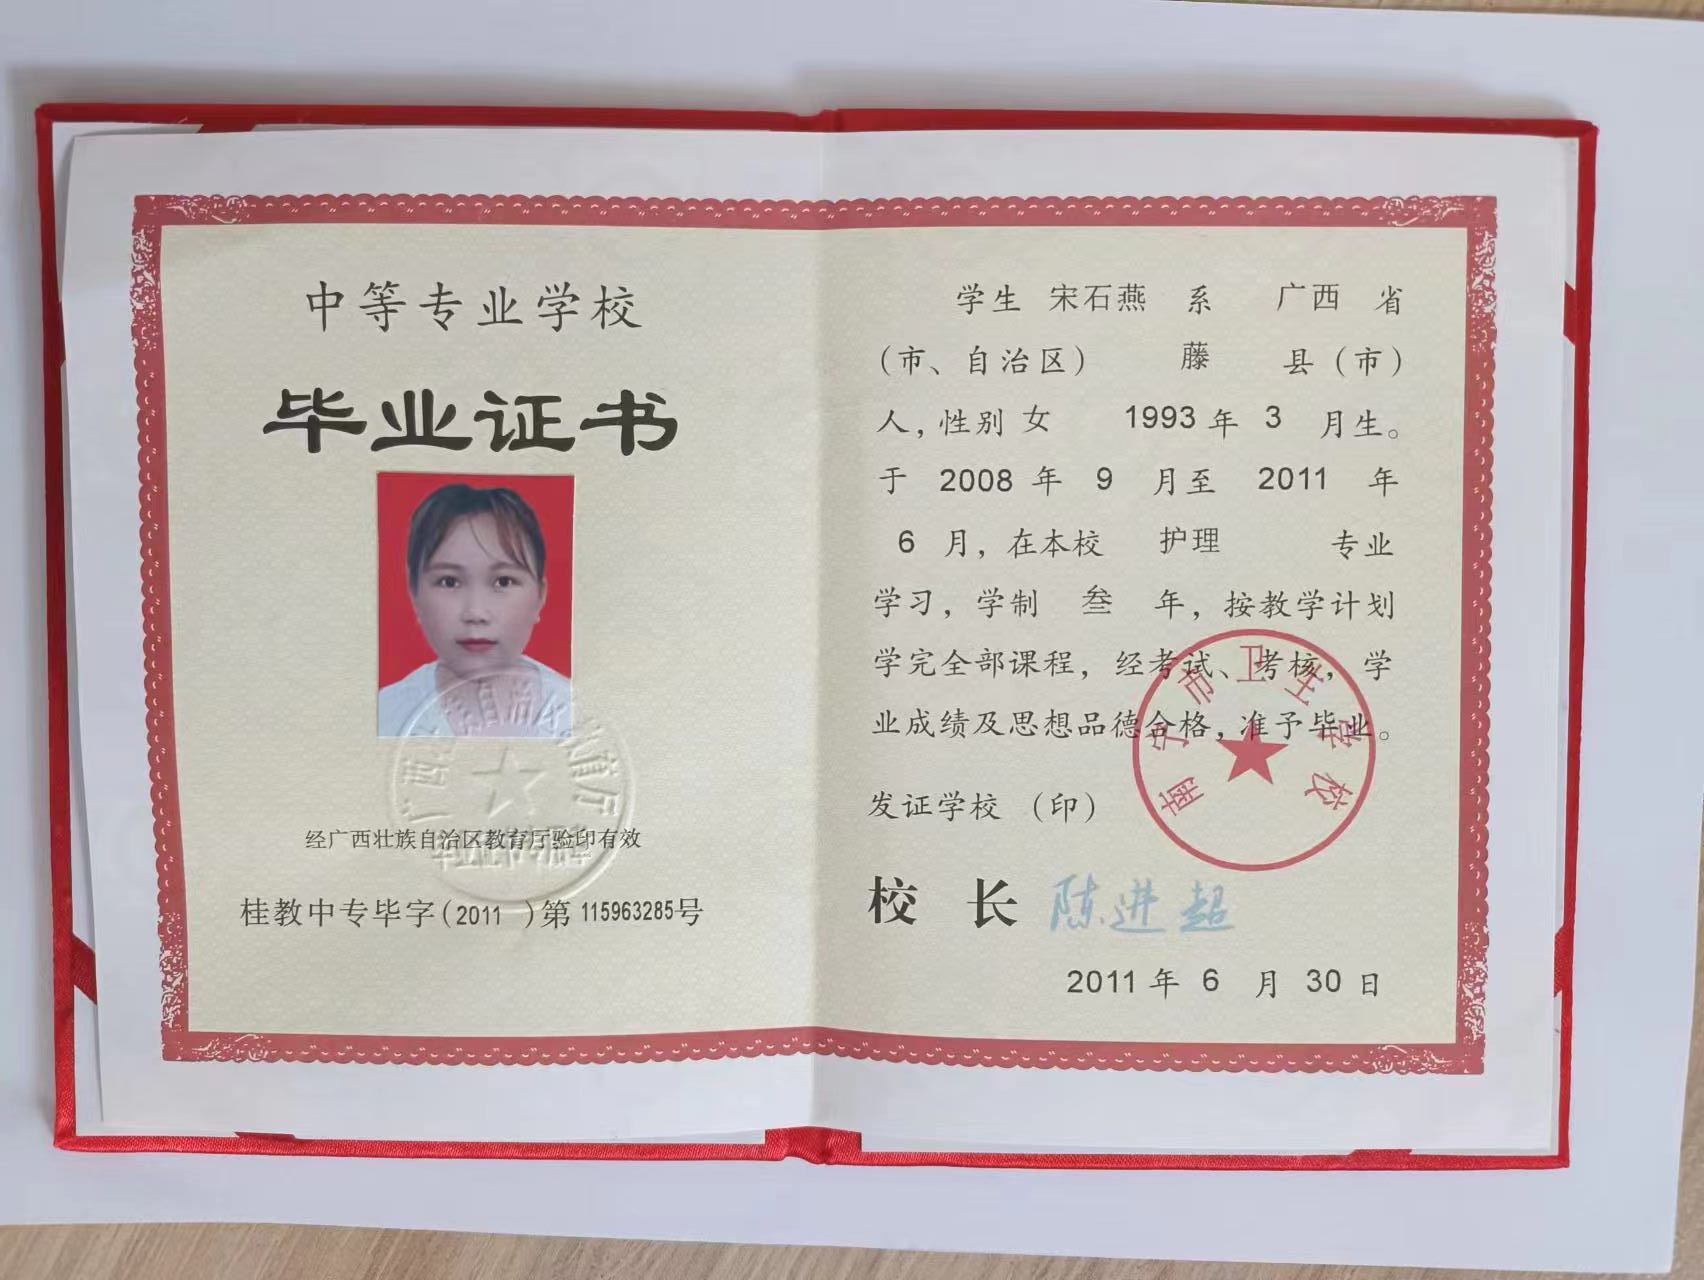 中等专业学校
毕业证书
广西壮族自治区教育厅
经广西壮族自治区教育厅验印有效
桂教中专毕字(2011 )第115963285号
学生 宋石燕 系 广西 省
(市、自治区) 藤 县(市)
人,性别 女 1993 年 3 月生。
于 2008 年 9 月至 2011 年
6 月,在本校 护理 专业
学习,学制 叁 年,按教学计划
学完全部课程,经考试、考核,学
业成绩及思想品德合格,准予毕业。
南宁市卫生学校
发证学校 (印)
校 长 陈进超
2011 年 6 月 30 日